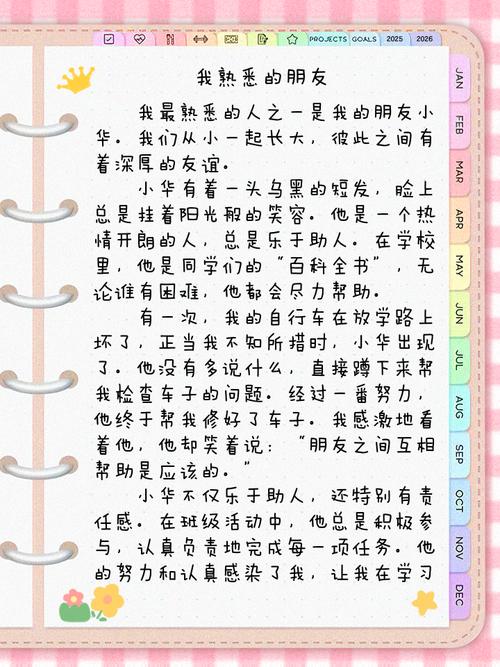 PROJECTS GOALS 2025 2026
我熟悉的朋友
我最熟悉的人之一是我的朋友小
华。我们从小一起长大，彼此之间有
着深厚的友谊。
小华有着一头乌黑的短发，脸上
总是挂着阳光般的笑容。他是一个热
情开朗的人，总是乐于助人。在学校
里，他是同学们的“百科全书”，无
论谁有困难，他都会尽力帮助。
有一次，我的自行车在放学路上
坏了，正当我不知所措时，小华出现
了。他没有多说什么，直接蹲下来帮
我检查车子的问题。经过一番努力，
他终于帮我修好了车子。我感激地看
着他，他却笑着说：“朋友之间互相
帮助是应该的。”
小华不仅乐于助人，还特别有责
任感。在班级活动中，他总是积极参
与，认真负责地完成每一项任务。他
的努力和认真感染了我，让我在学习
JAN
FEB
MAR
APR
MAY
JUN
JUL
AUG
SEP
OCT
NOV
DEC